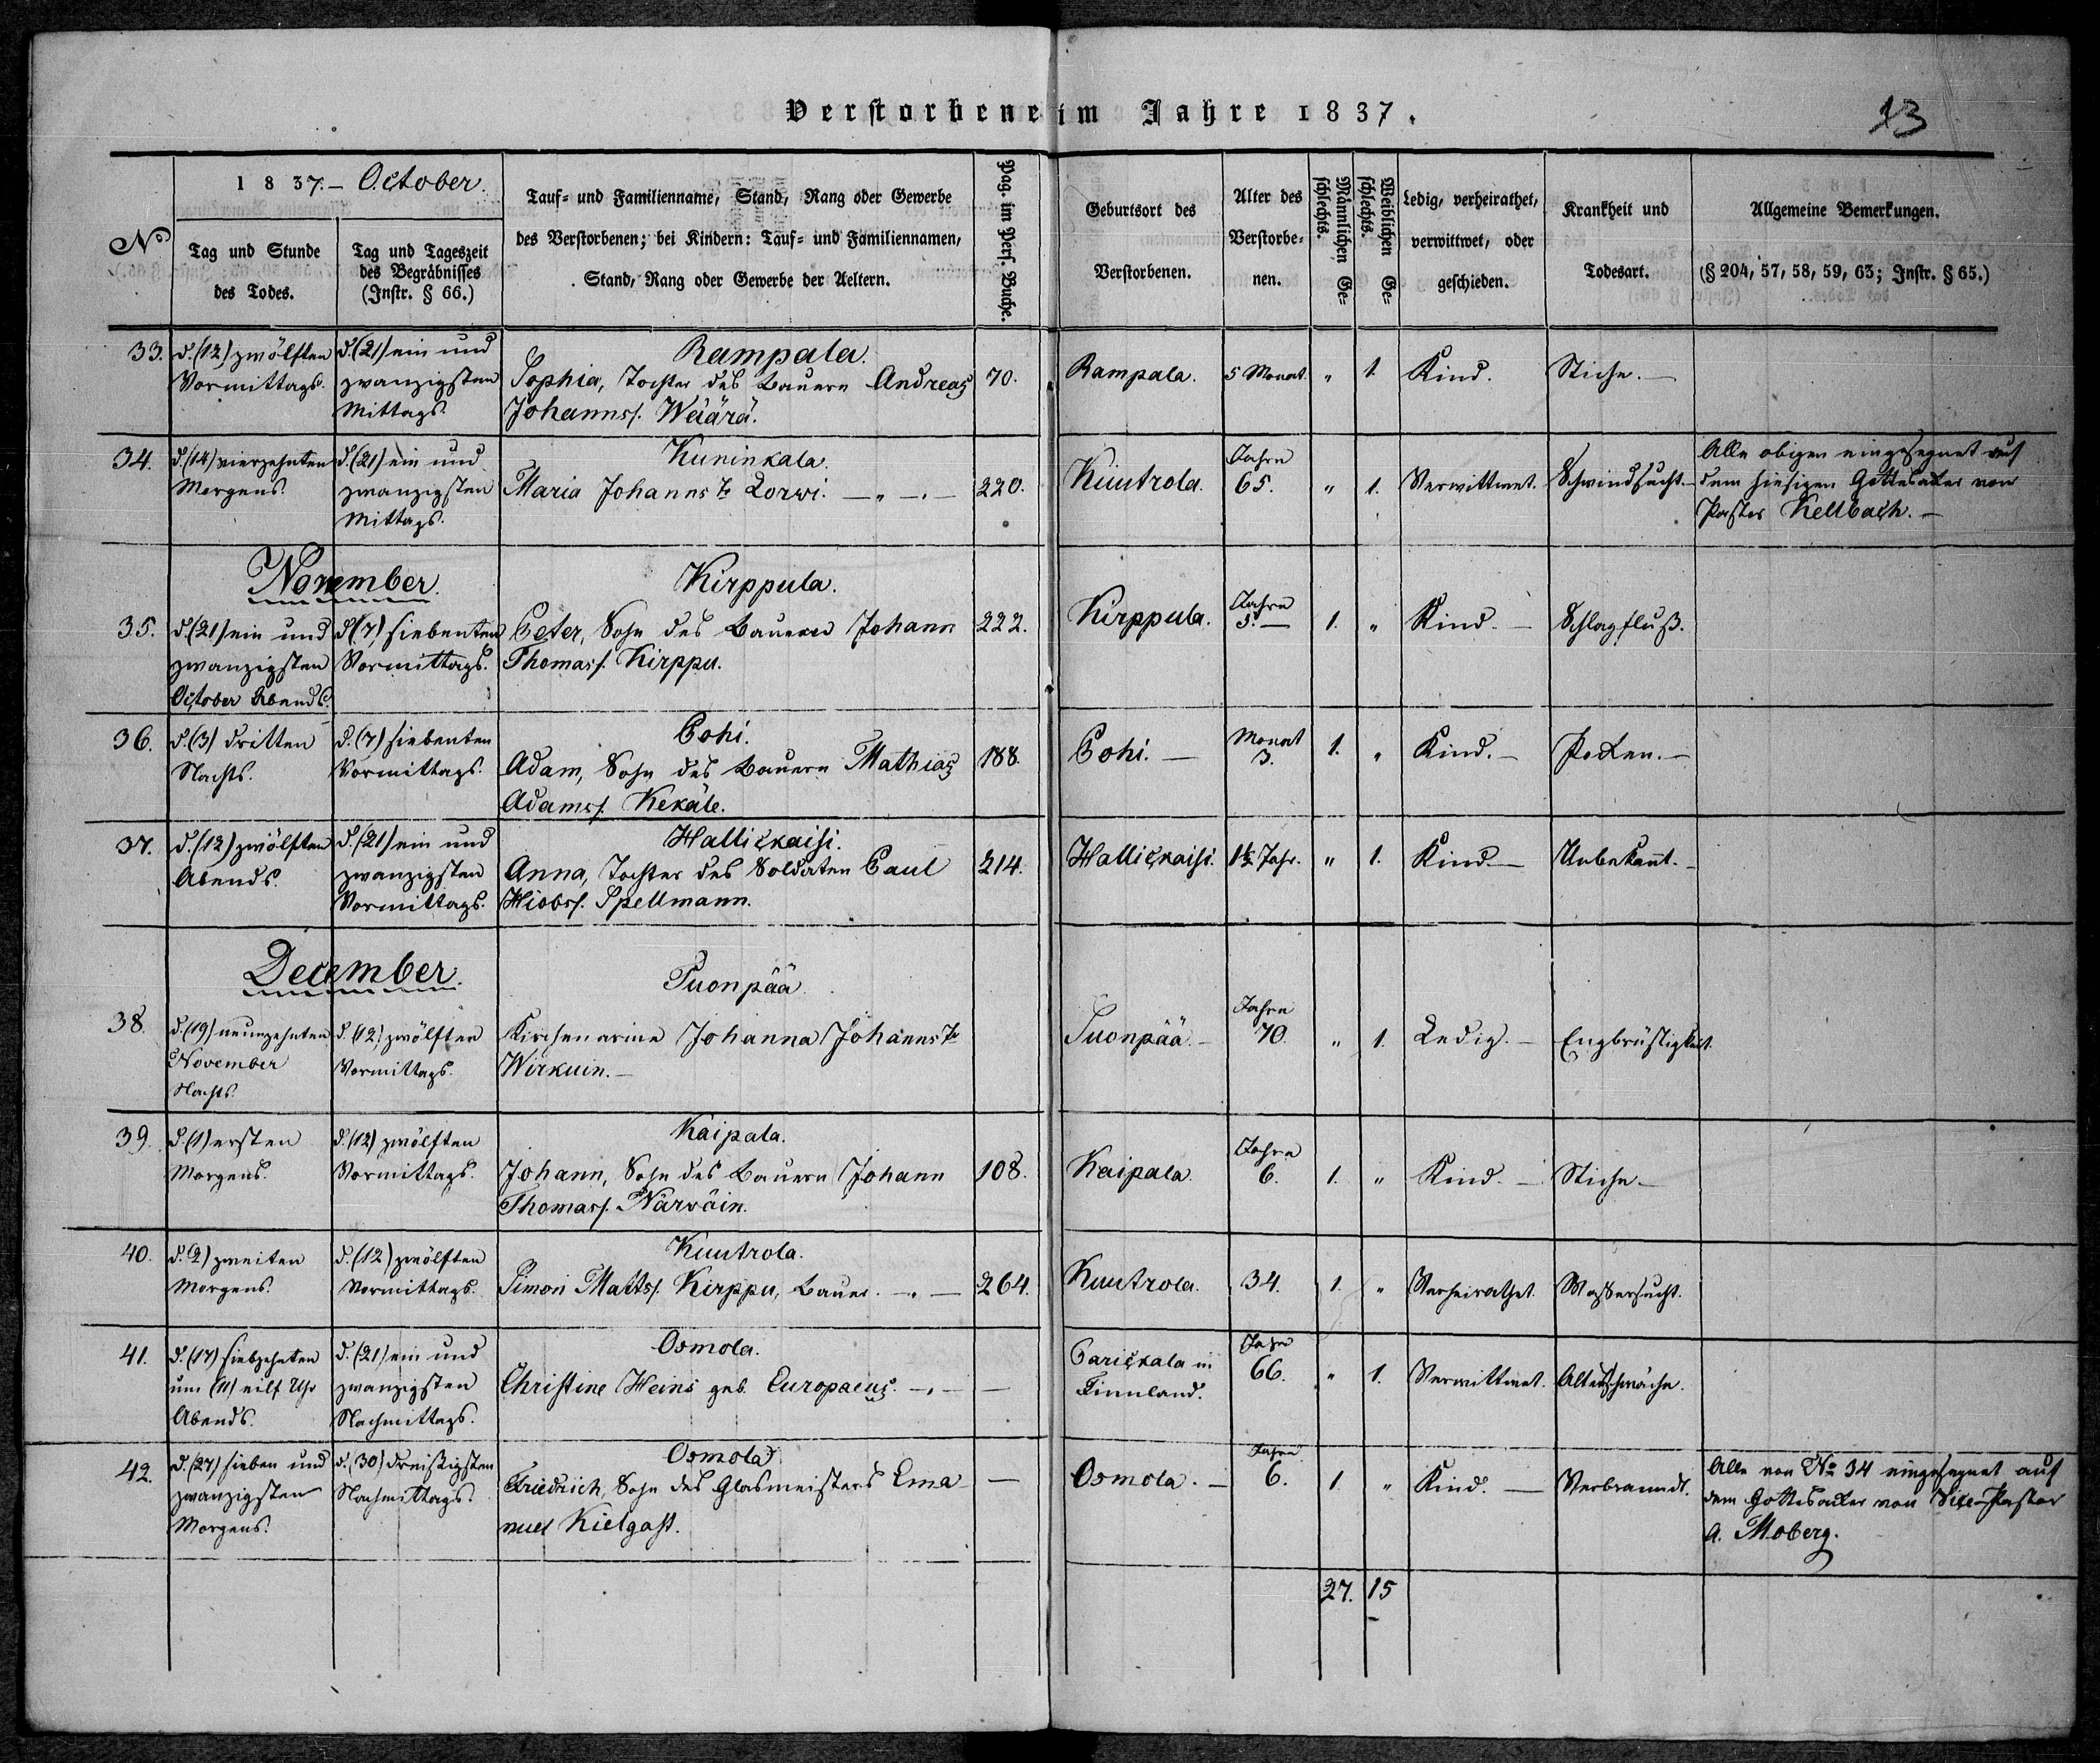 Verstorbene im Jahre 1837.
13
No
1837.- October.
Tag und Stunde des Todes.
Tag und Tageszeit des Begräbnisses (Instr. § 66.)
Tauf- und Familienname, Stand, Rang oder Gewerbe
des Verstorbenen; bei Kindern: Tauf- und Familiennamen,
Stand, Rang oder Gewerbe der Aeltern.
Pag. im Pers. Buche.
Geburtsort des Verstorbenen.
Alter des Verstorbenen.
Männlichen Geschlechts.
Weiblichen Geschlechts.
Ledig, verheirathet, verwittwet, oder geschieden.
Krankheit und Todesart.
Allgemeine Bemerkungen.
(§ 204, 57, 58, 59, 63; Instr. § 65.)
33. d. (12) zwölften Vormittags. d. (21) ein und zwanzigsten Mittags.
Rampala.
Sophia, Tochter des Bauern Andreas 70.
Johannss. Wäärä.
Rampala. 5 Monat. " 1. Kind. Stiche.-
34. d. (14) vierzehnten Morgens. d. (21) ein und zwanzigsten Mittags.
Kuninkala.
Maria Johannst. Zorwi. -"-.- 220.
Kuutrola. Jahre 65. " 1. Verwittwet. Schwindsucht.-
Alle obigen eingesegnet auf
dem hiesigen Gottesacker von
Pastor Kellbach.-
November.
35. d. (21) ein und zwanzigsten October Abends. d. (7) siebenten Vormittags.
Kirppula.
Peter, Sohn des Bauern Johann 222.
Thomass. Kirppu.
Kirppula. Jahre 5.- 1. " Kind.- Schlagfluß.
36. d. (3) dritten Nachts. d. (7) siebenten Vormittags.
Pohi.
Adam, Sohn des Bauern Mathias 188.
Adamss. Kekäle.
Pohi.- Monat 3. 1. " Kind.- Pocken.-
37. d. (12) zwölften Abends. d. (21) ein und zwanzigsten Vormittags.
Hallickaisi.
Anna, Tochter des Soldaten Paul 214.
Hiobss. Spellmann.
Hallickaisi. 1½ Jahr. " 1. Kind.- Unbekannt.-
December.
38. d. (19) neunzehnten November Nachts. d. (12) zwölften Vormittags.
Suonpää.
Kirchenarme Johanna Johannst.
Wirkuin.-
Suonpää.- Jahre 70. " 1. Ledig.- Engbrüstigkeit.
39. d. (1) ersten Morgens. d. (12) zwölften Vormittags.
Kaipala.
Johann, Sohn des Bauern Johann 108.
Thomass. Närwäin.
Kaipala. Jahre 6. 1. " Kind.- Stiche.-
40. d. (2) zweiten Morgens. d. (12) zwölften Vormittags.
Kuutrola.
Simon Mattss. Kirppu, Bauer. -.- 264.
Kuutrola. 34. 1. " Verheirathet. Wassersucht.
41. d. (17) siebzehnten um (11) eilf Uhr Abends. d. (21) ein und zwanzigsten Nachmittags.
Osmola.
Christine Heins geb. Europaeus. -.- -
Parickala in Finnland. Jahre 66. " 1. Verwittwet. Altersschwäche.
42. d. (27) sieben und zwanzigsten Morgens. d. (30) dreißigsten Nachmittags.
Osmola.
Friedrich, Sohn des Glasmeisters Ema- -
nuel Kielgast.
Osmola.- Jahre 6. 1. " Kind.- Verbrannt.
Alle von No 34 eingesegnet auf
dem Gottesacker von Vice-Pastor
A. Moberg.
27. 15